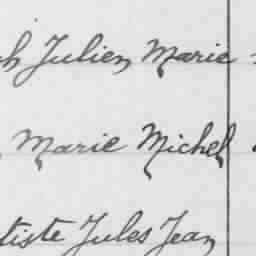 ph Julien Marie
Marie Michel
tiste Jules Jean